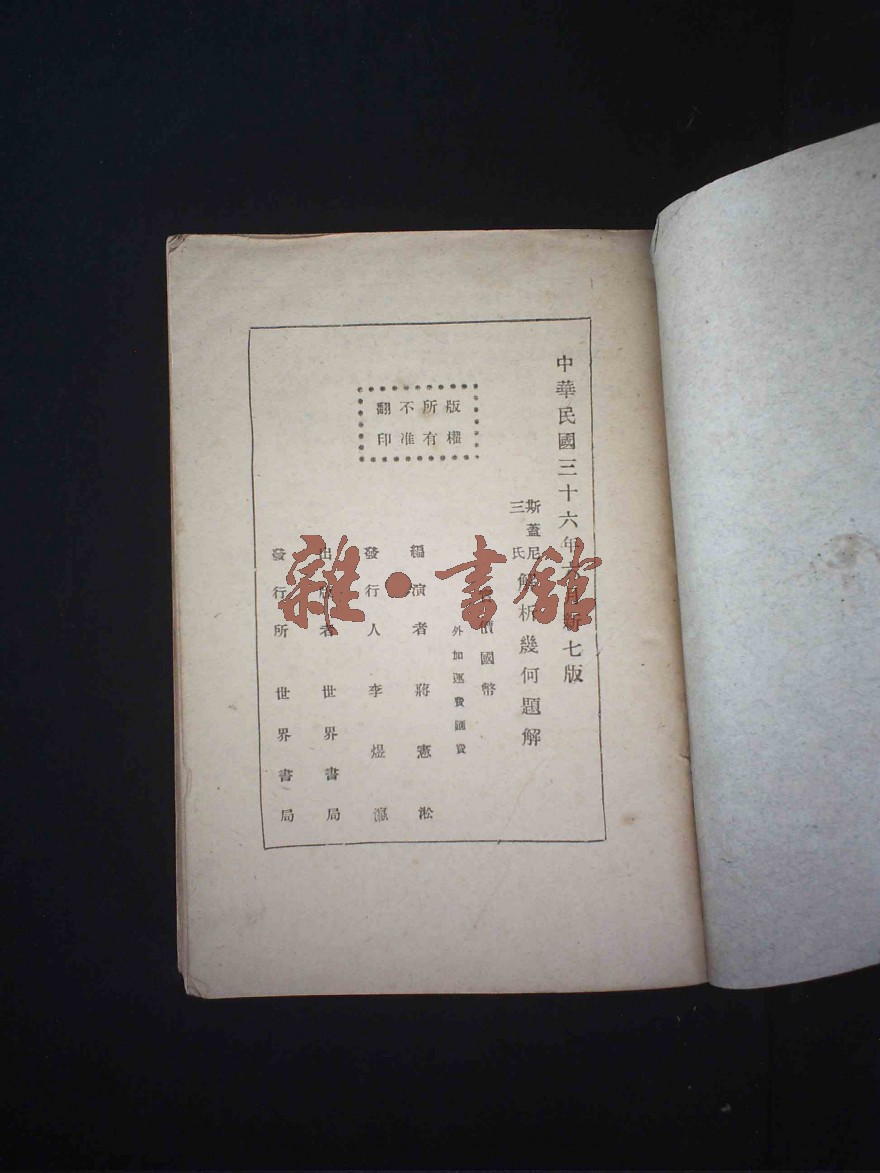 中華民國三十六年六月新七版
斯蓋尼
三氏
解析幾何題解
價國幣
外加運費匯費
編演者 蔣憲淞
發行人 李煜瀛
出版者 世界書局
發行所 世界書局
版權
所有
不准
翻印
雜·書館